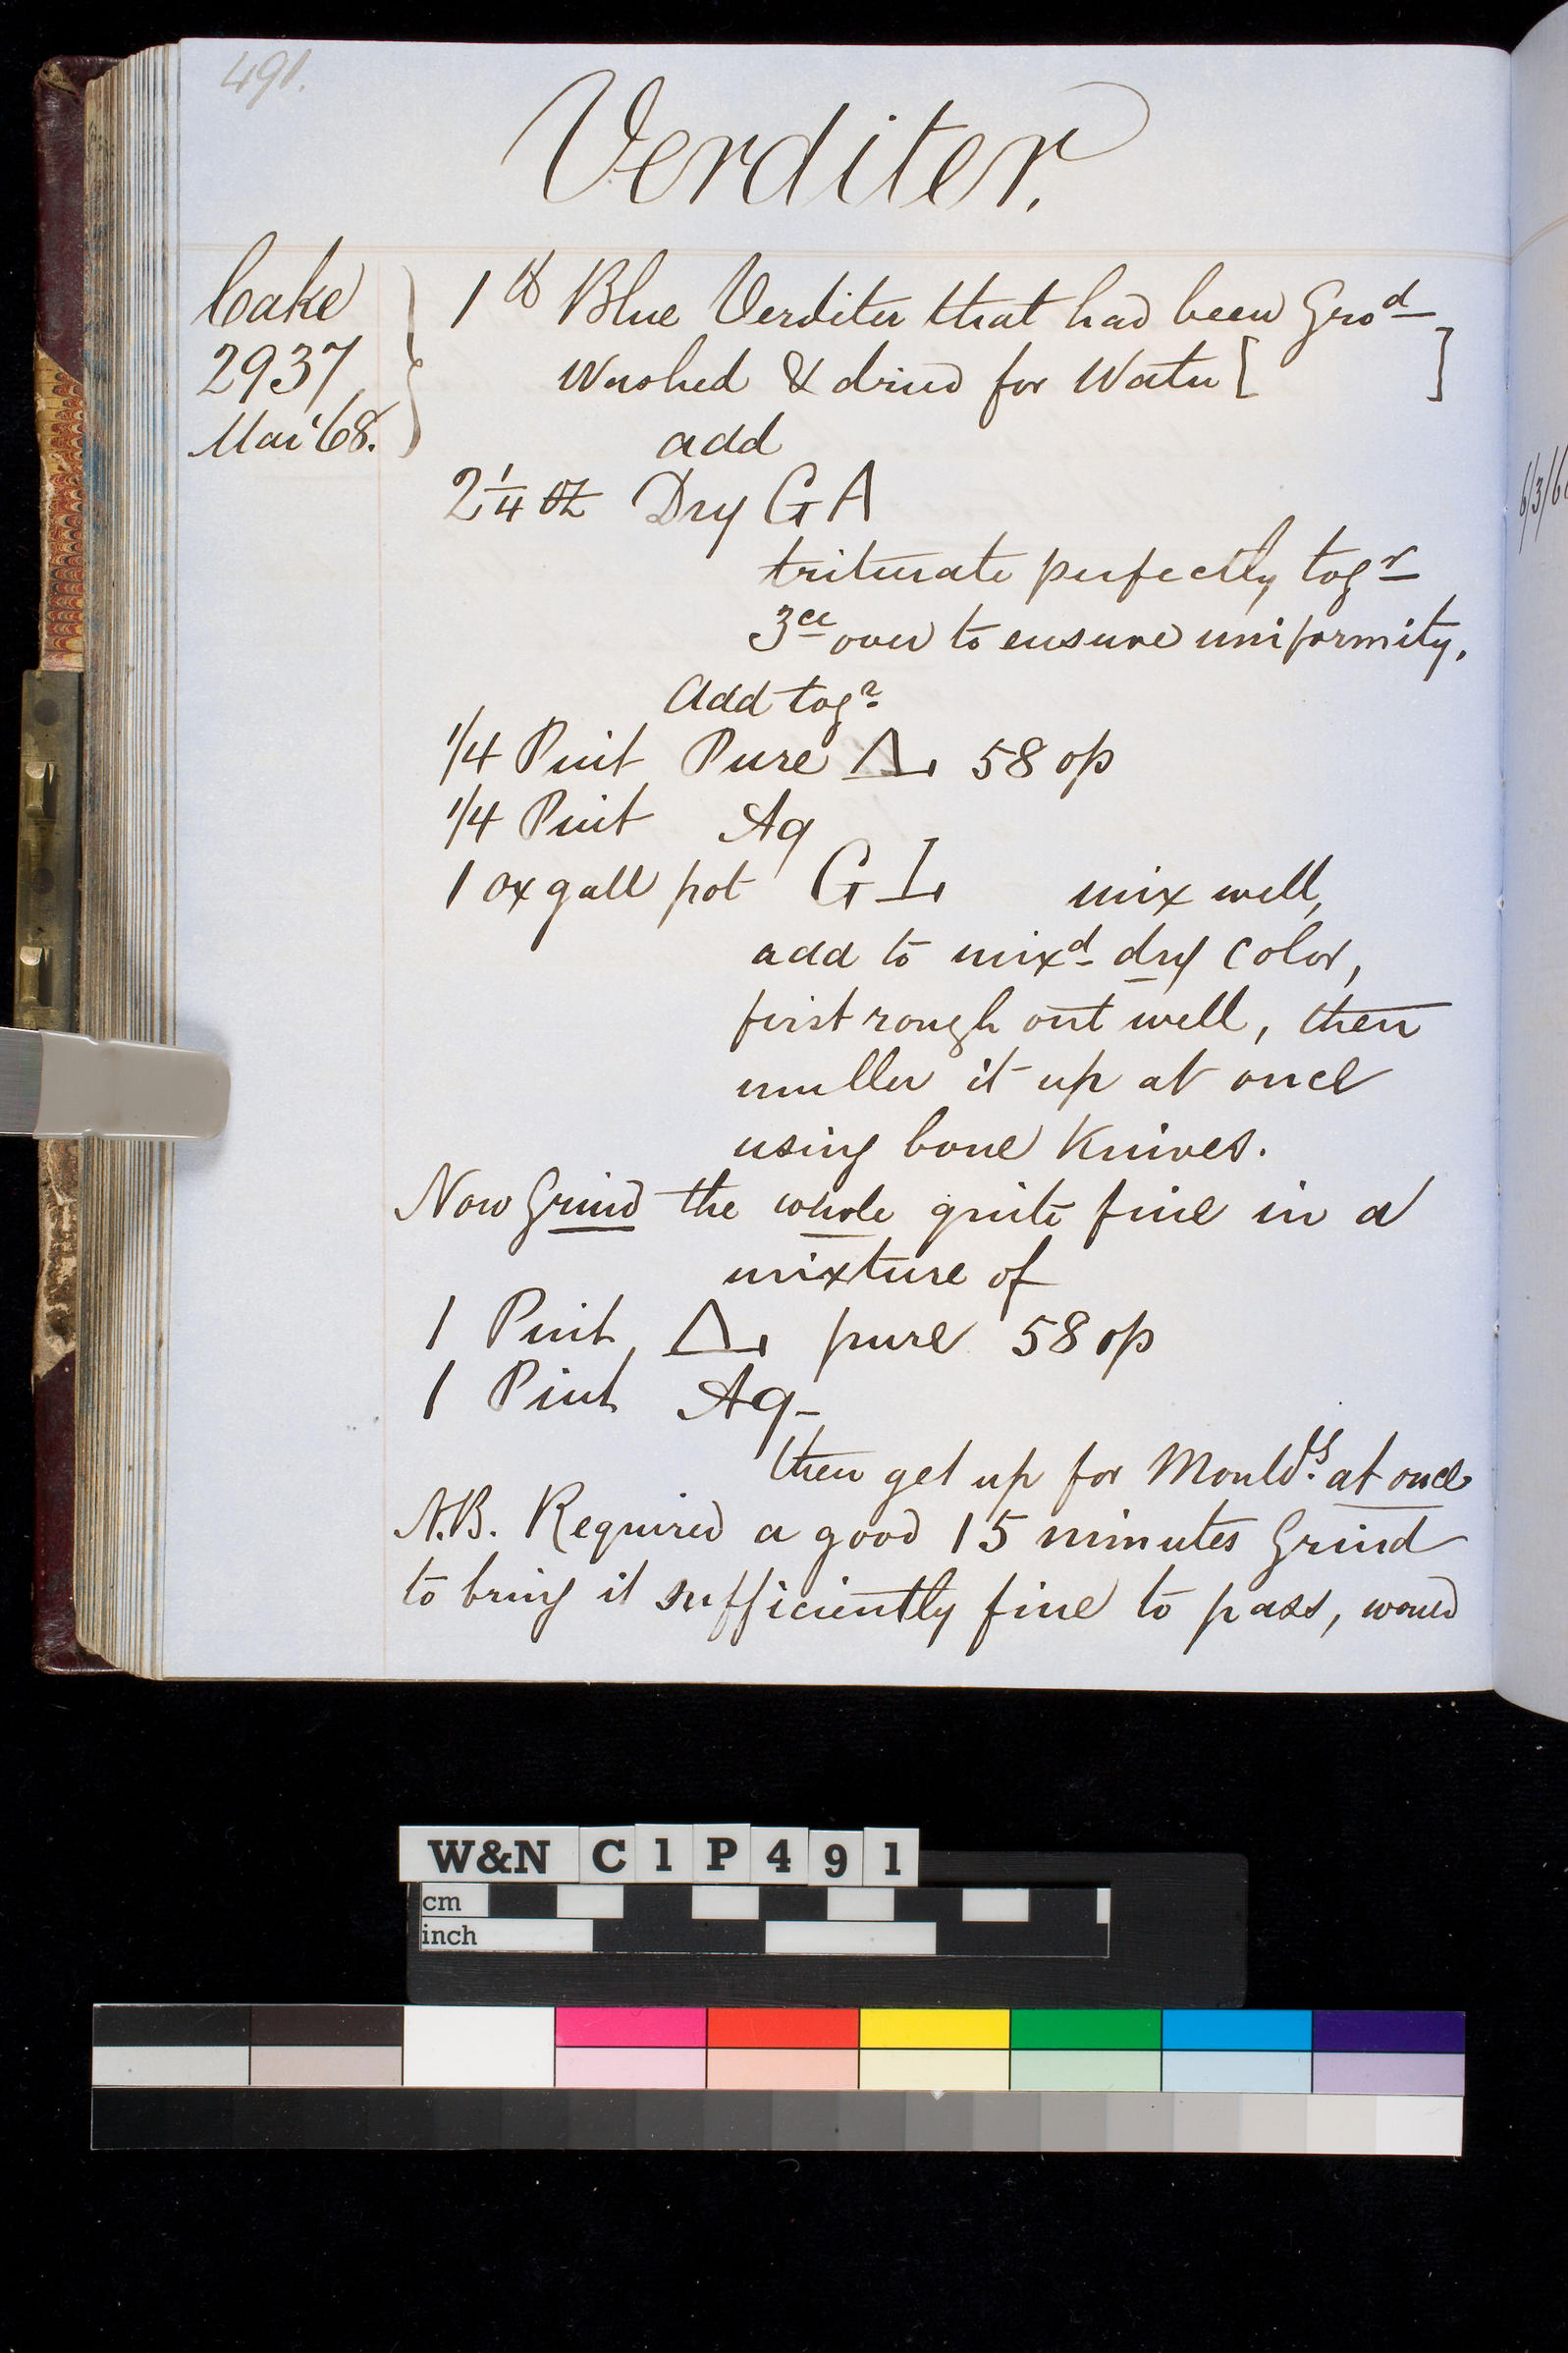 491.
Verditer.
Cake
2937
Mar '68.
1 lb Blue Verditer that had been Gro^d
Washed & dried for Water [ ]
add
2 1/4 oz Dry G A
triturate perfectly tog^r
3^ce over to ensure uniformity.
Add tog^r
1/4 Pint Pure △. 58 op
1/4 Pint Aq
1 ox gall pot G L. mix well,
add to mix^d dry color,
first rough out well, then
muller it up at once
using bone Knives.
Now Grind the whole quite fine in a
mixture of
1 Pint △. pure 58 op
1 Pint Aq-
then get up for Mould^g. at once
N.B. Required a good 15 minutes Grind
to bring it sufficiently fine to pass, would
W&N C 1 P 4 9 1
cm
inch